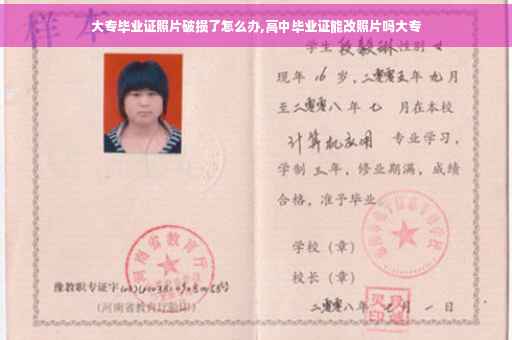 大专毕业证照片破损了怎么办,高中毕业证能改照片吗大专
样本
学生段毅琳性别女
现年16岁,二零零五年九月
至二零零八年七月在本校
计算机应用 专业学习,
学制三年,修业期满,成绩
合格,准予毕业
学校(章)
校长(章)
二零零八年七月一日
河南省教育厅
豫教职专证字
(河南省教育厅验印)